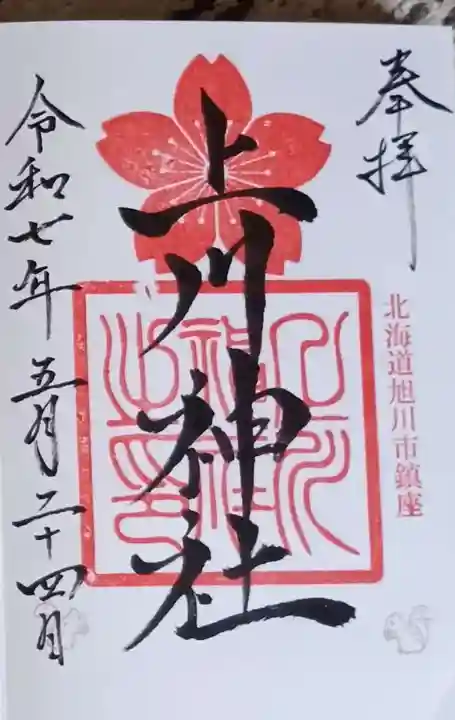 奉拝
北海道旭川市鎮座
上川神社
令和七年五月二十四日